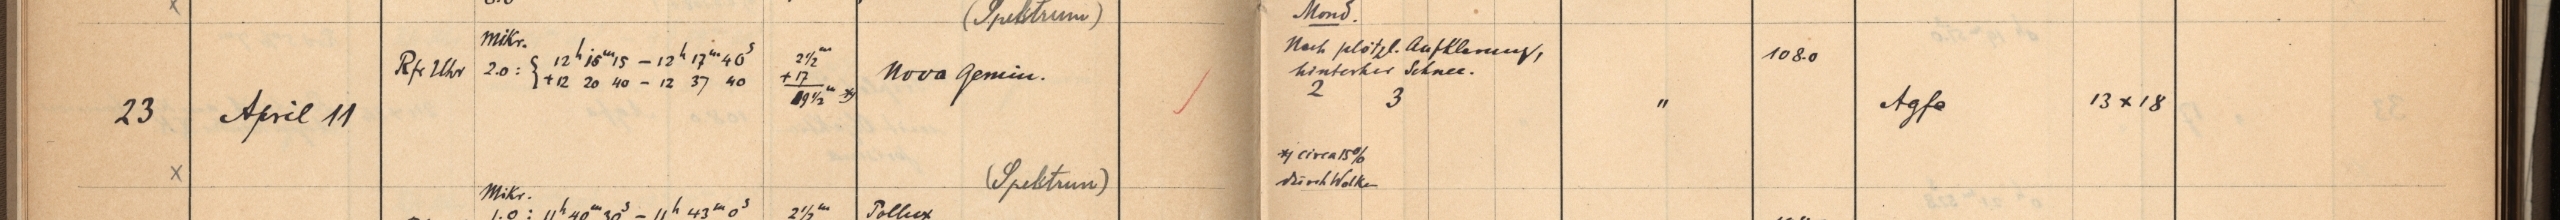 (Spektrum)
Mond.
Mikr.
Rfr Uhr 2.0: { 12ʰ 15ᵐ 15 – 12ʰ 17ᵐ 40ˢ
+12 20 40 – 12 37 40
2½ᵐ
+17
19½ᵐ *)
Nova Gemin.
Nach plötzl. Aufklarung,
hinterher Schnee.
2 3
108.0
23 April 11
"
Agfa
13 x 18
*) circa 15%
durch Wolken
x
(Spektrum)
Mikr.
1.0: 11ʰ 40ᵐ 30ˢ – 11ʰ 43ᵐ 0ˢ
2½ᵐ
Pollux